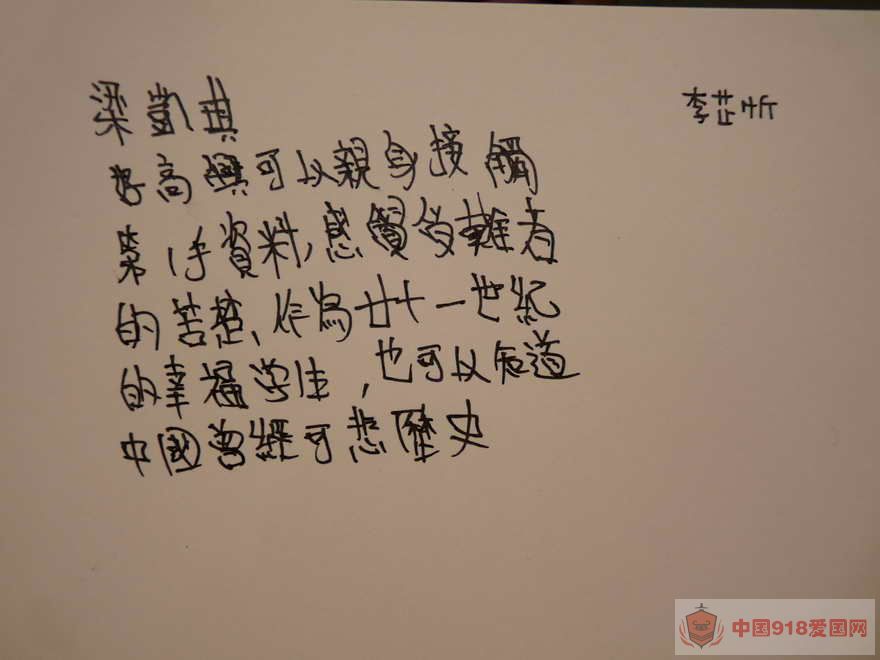 梁凱琪
李芷忻
好高興可以親身接觸
第1手資料,感覺受難者
的苦楚、作為廿十一世紀
的幸福学生,也可以知道
中國曾經可悲歷史
中国918爱国网